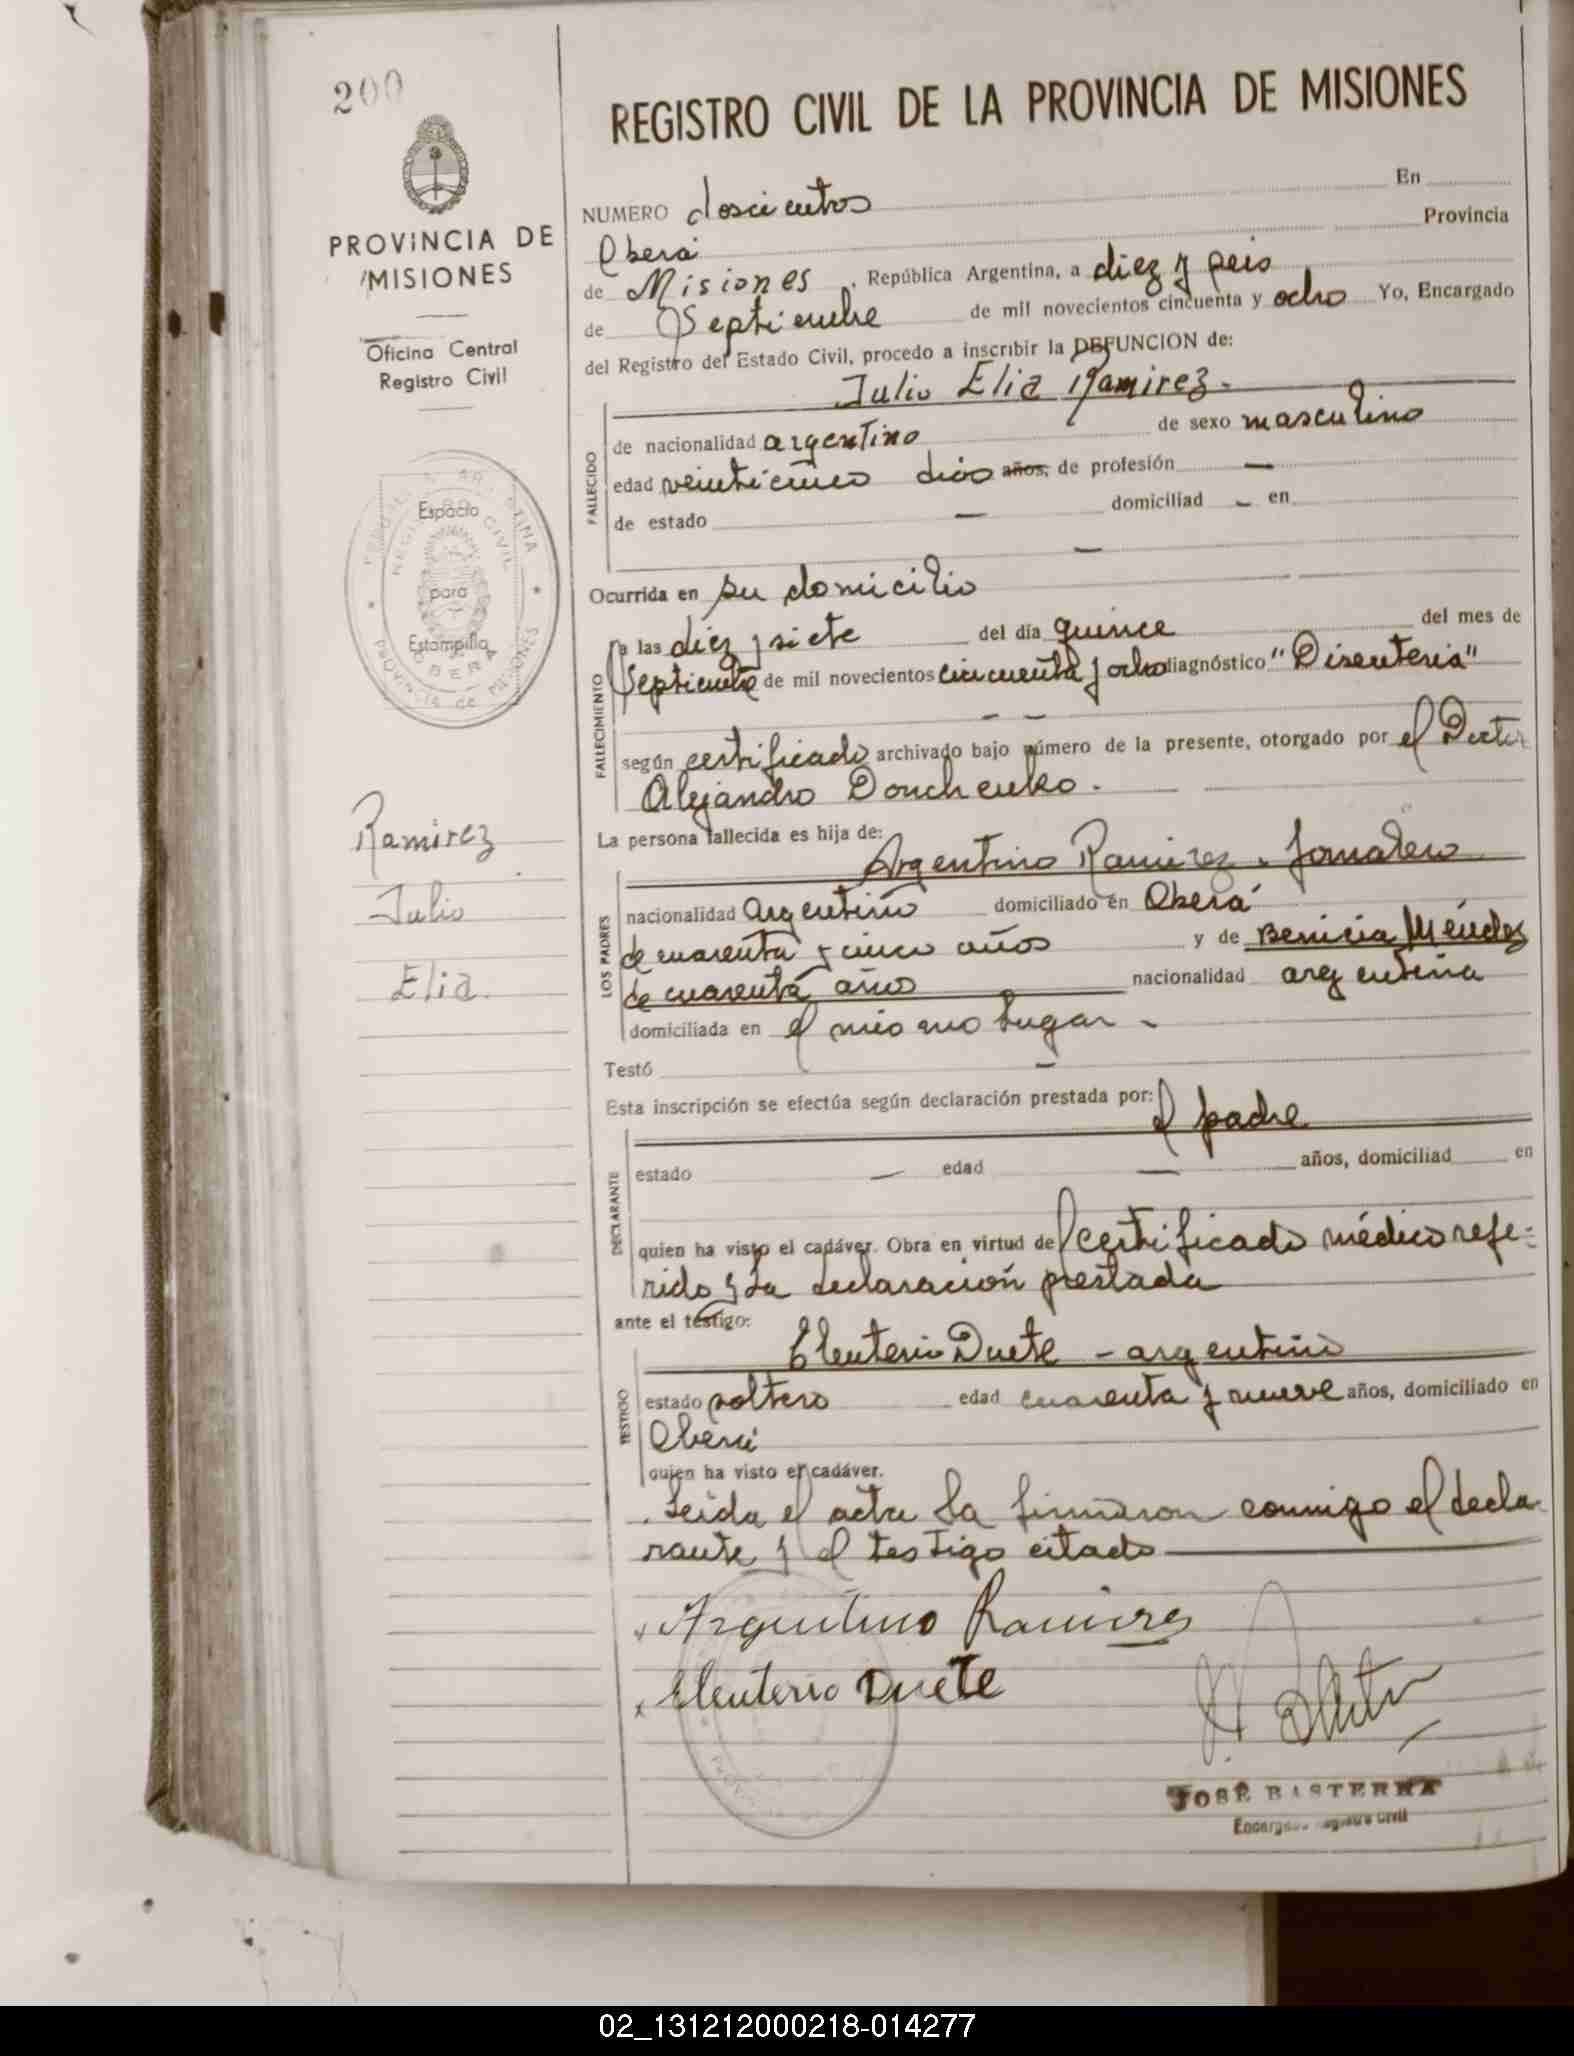 200
REGISTRO CIVIL DE LA PROVINCIA DE MISIONES
PROVINCIA DE
MISIONES
Oficina Central
Registro Civil
Espacio
para
Estampilla
NUMERO doscientos En
Oberá Provincia
de Misiones, República Argentina, a diez y seis
de Septiembre de mil novecientos cincuenta y ocho Yo, Encargado
del Registro del Estado Civil, procedo a inscribir la DEFUNCION de:
Julio Elia Ramirez.
FALLECIDO
de nacionalidad argentino de sexo masculino
edad veinticinco dias años, de profesión —
de estado — domiciliad – en
—
Ocurrida en su domicilio
FALLECIMIENTO
a las diez y siete del día quince del mes de
Septiembre de mil novecientos cincuenta y ocho diagnóstico "Disenteria"
según certificado archivado bajo número de la presente, otorgado por el Doctor
Alejandro Donchenko.
Ramirez
Julio
Elia.
La persona fallecida es hija de:
Argentino Ramirez. Jornalero
LOS PADRES
nacionalidad Argentino domiciliado en Oberá
de cuarenta y cinco años y de Benicia Méndez
de cuarenta años nacionalidad argentina
domiciliada en el mismo lugar –
Testó —
Esta inscripción se efectúa según declaración prestada por: el padre
DECLARANTE
estado — edad — años, domiciliad en
quien ha visto el cadáver. Obra en virtud del certificado médico refe-
rido y la declaración prestada
ante el testigo:
Eleuterio Duete – argentino
TESTIGO
estado soltero edad cuarenta y nueve años, domiciliado en
Oberá
quien ha visto el cadáver.
Leida el acta la firmaron conmigo el decla-
rante y el testigo citado
Argentino Ramirez
Eleuterio Duete
JOSÉ BASTERRA
Encargado Registro Civil
02_131212000218-014277